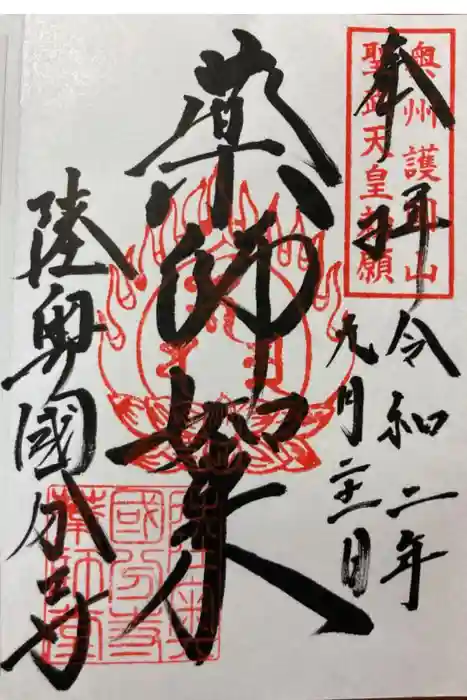 奉拝
奥州 護国山
聖武天皇勅願
令和二年
九月二十二日
薬師如来
陸奥國分寺
陸奥
國分寺
薬師堂